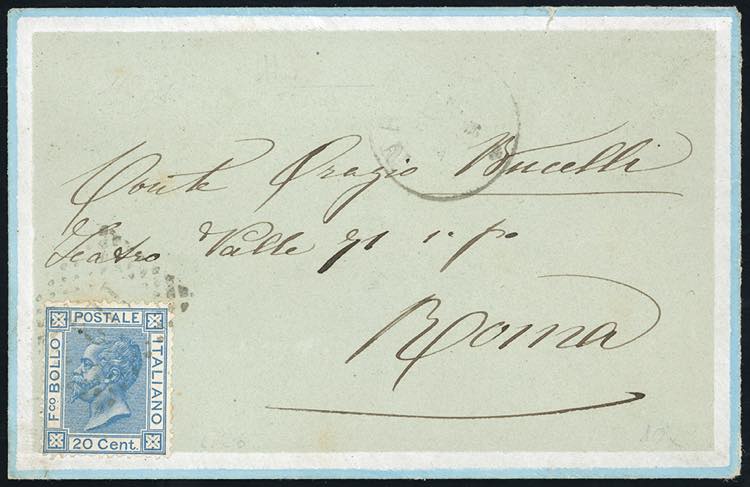 Conte Orazio Bucelli
Teatro Valle 71 1.º p.º
Roma
POSTALE
F.co BOLLO
ITALIANO
20 Cent.